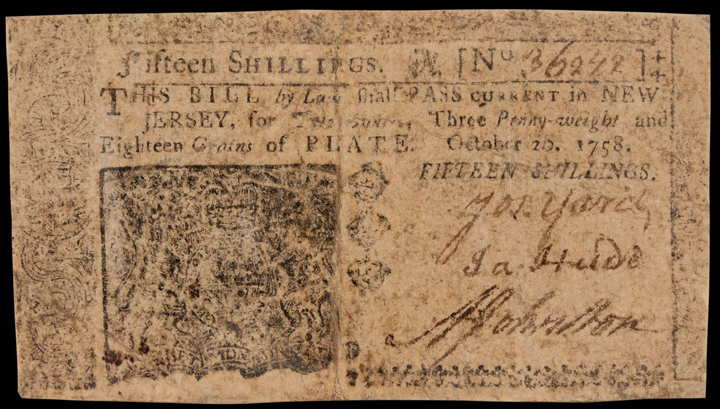 Fifteen SHILLINGS. [No 36242]
THIS BILL by Law shall PASS CURRENT in NEW
JERSEY, for Two Ounces, Three Penny-weight and
Eighteen Grains of PLATE. October 20. 1758.
FIFTEEN SHILLINGS.
Jos. Yard
Ja Hude
S Johnston